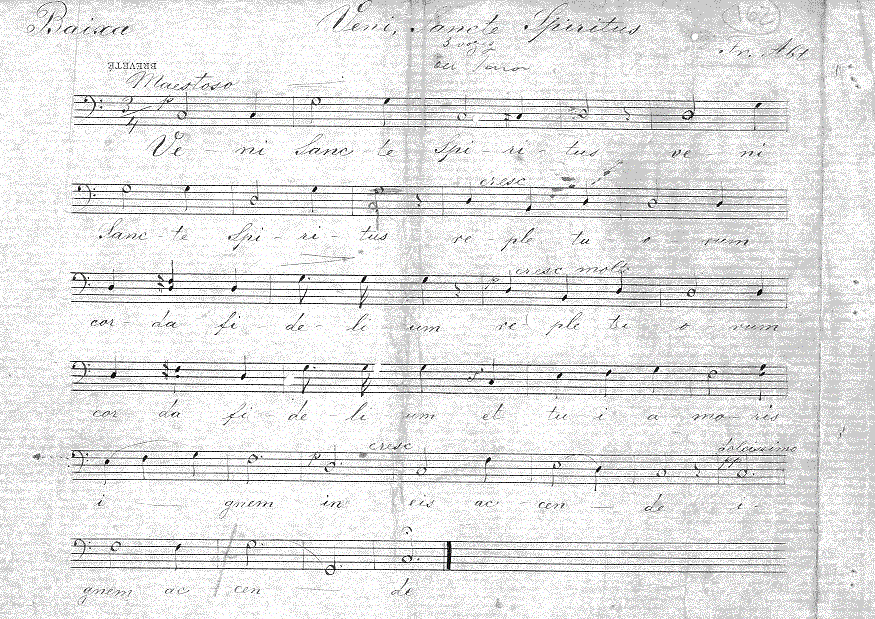 Baixa Veni, Sancte Spiritus 162
3 voz
ou Coro Fr. Abt
BREVETÉ
Maestoso
p
3/4
Ve - ni Sanc te Spi - ri - tus ve ni
cresc
Sanc te Spi - ri - tus re - ple tu - o - rum
p cresc molto
cor - da fi - de - li - um re ple tu o - rum
cor da fi - de - li - um et tu i a mo - ris
p cresc dolcissimo
pp
i - gnem in eis ac - cen - de i -
gnem ac cen - de